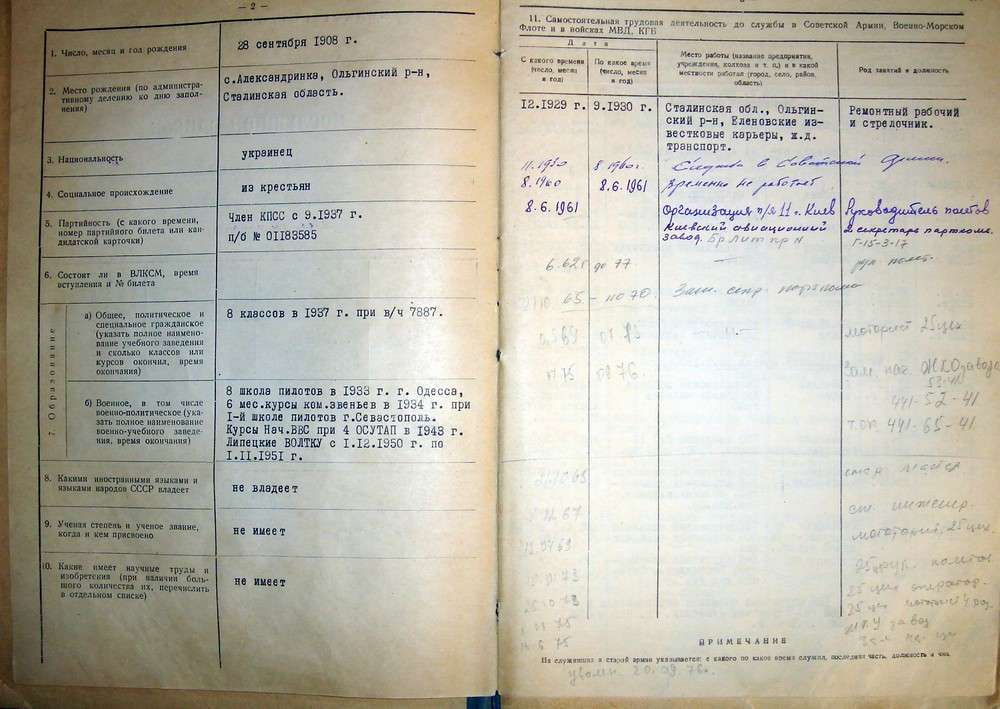 — 2 —
1. Число, месяц и год рождения
28 сентября 1908 г.
2. Место рождения (по администра-
тивному делению ко дню запол-
нения)
с.Александринка, Ольгинский р-н,
Сталинская область.
3. Национальность
украинец
4. Социальное происхождение
из крестьян
5. Партийность (с какого времени,
номер партийного билета или кан-
дидатской карточки)
Член КПСС с 9.1937 г.
п/б № 01183585
6. Состоит ли в ВЛКСМ, время
вступления и № билета
7. Образование
а) Общее, политическое и
специальное гражданское
(указать полное наимено-
вание учебного заведения
и сколько классов или
курсов окончил, время
окончания)
8 классов в 1937 г. при в/ч 7887.
б) Военное, в том числе
военно-политическое (ука-
зать полное наименование
военно-учебного заведе-
ния, время окончания)
8 школа пилотов в 1933 г. г. Одесса,
6 мес.курсы ком.звеньев в 1934 г. при
I-й школе пилотов г.Севастополь.
Курсы Нач.ВВС при 4 ОСУТАП в 1943 г.
Липецкие ВОЛТКУ с 1.12.1950 г. по
1.11.1951 г.
8. Какими иностранными языками и
языками народов СССР владеет
не владеет
9. Ученая степень и ученое звание,
когда и кем присвоено
не имеет
10. Какие имеет научные труды и
изобретения (при наличии боль-
шого количества их, перечислить
в отдельном списке)
не имеет
11. Самостоятельная трудовая деятельность до службы в Советской Армии, Военно-Морском
Флоте и в войсках МВД, КГБ
Дата
С какого времени
(число, месяц
и год)
По какое время
(число, месяц
и год)
Место работы (название предприятия,
учреждения, колхоза и т. п.) и в какой
местности работал (город, село, район,
область)
Род занятий и должность
12.1929 г.
9.1930 г.
Сталинская обл., Ольгин-
ский р-н, Еленовские из-
вестковые карьеры, ж.д.
транспорт.
Ремонтный рабочий
и стрелочник.
11.1930 8.1960г. Служба в Советской Армии.
8.1960 8.6.1961 Временно не работает
8.6.1961 Организация п/я 11 г. Киев
Киевский авиационный
завод.
Руководитель полетов
и секретарь парткома.
Г-15-3-17
6.62г до 77 рук. полет.
65 – по 70. Зам. секр. парткома
моторист 25 цех
75 76. Зам. нач. ЖКО завода
53-41
441-52-41
441-65-41
67 ст. инженер.
25 цех
73
25.10.73 25 цех
75
75
ПРИМЕЧАНИЕ
На служивших в старой армии указывается: с какого по какое время служил, последняя часть, должность и чин.
уволен 20.09.76г.